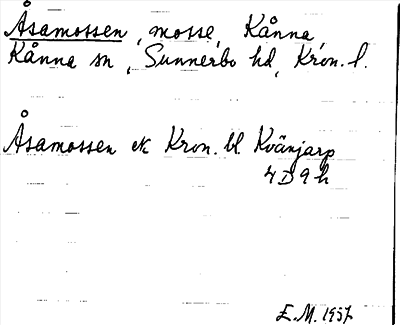 Åsamossen, mosse, Kånna,
Kånna sn, Sunnerbo hd, Kron. l.
Åsamossen ek Kron. bl Kvänjarp
4D9h
E.M. 1957